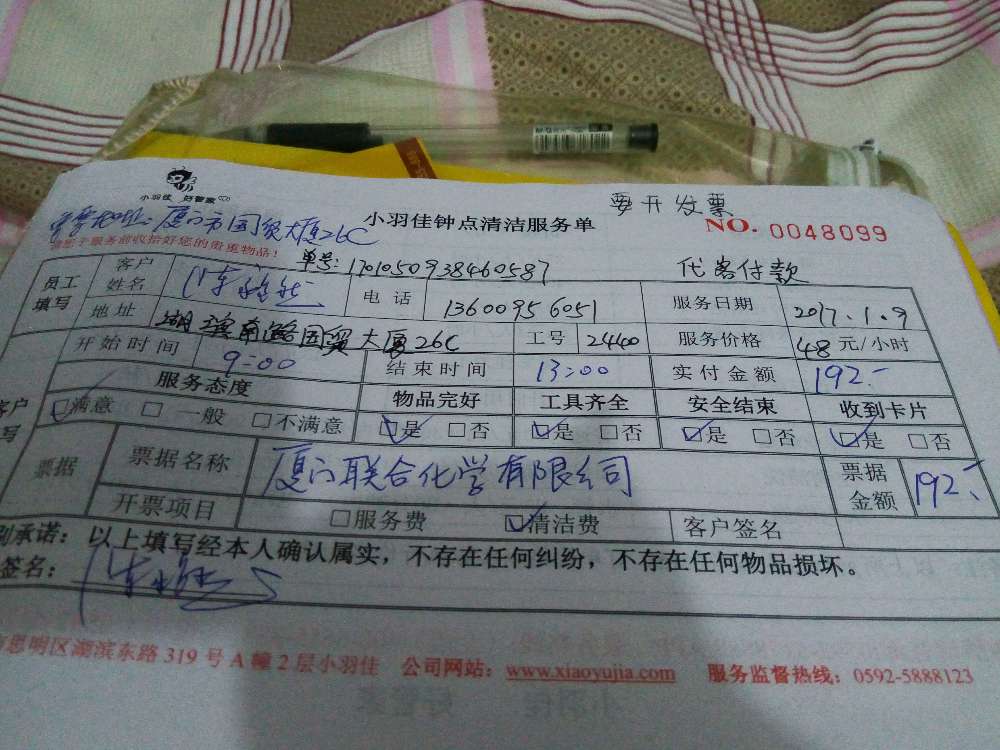 小羽佳 好管家
小羽佳钟点清洁服务单
要开发票
NO. 0048099
地址:厦门市国贸大厦26C
服务前收拾好您的贵重物品!
单号:170105093846 0587
代客付款
员工填写 客户姓名 陈 电话 13600956051 服务日期 2017.1.9
地址 湖滨南路国贸大厦26C 工号 24400 服务价格 48元/小时
开始时间 9:00 结束时间 13:00 实付金额 192.-
服务态度 物品完好 工具齐全 安全结束 收到卡片
☑满意 □一般 □不满意 ☑是 □否 ☑是 □否 ☑是 □否 ☑是 □否
票据 票据名称 厦门联合化学有限公司 票据金额 192.-
开票项目 □服务费 ☑清洁费 客户签名
承诺:以上填写经本人确认属实,不存在任何纠纷,不存在任何物品损坏。
签名:陈
思明区湖滨东路319号A幢2层小羽佳 公司网站:www.xiaoyujia.com 服务监督热线:0592-5888123